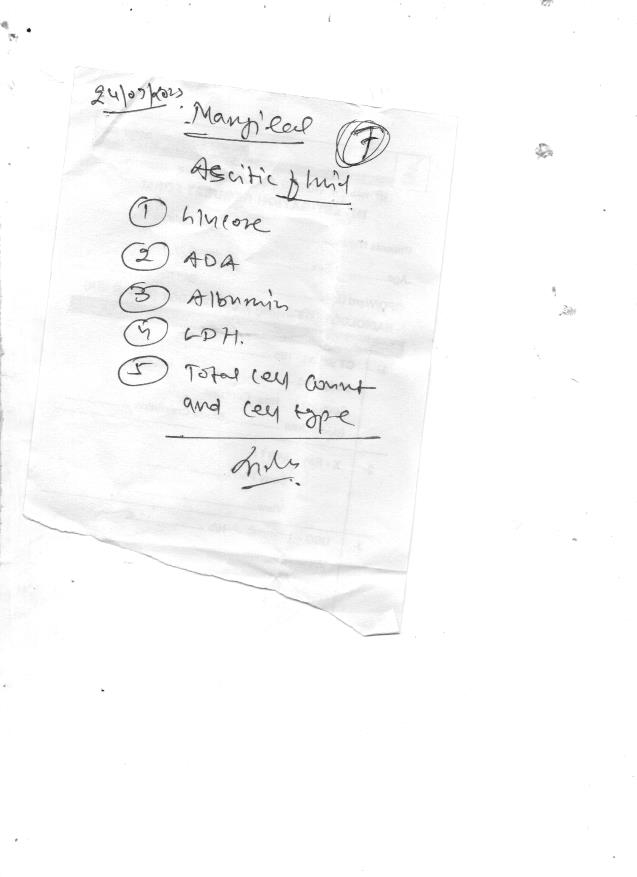 24/07/2023
Mangilal
7
Ascitic fluid
1 Glucose
2 ADA
3 Albumin
4 LDH.
5 Total cell count
and cell type